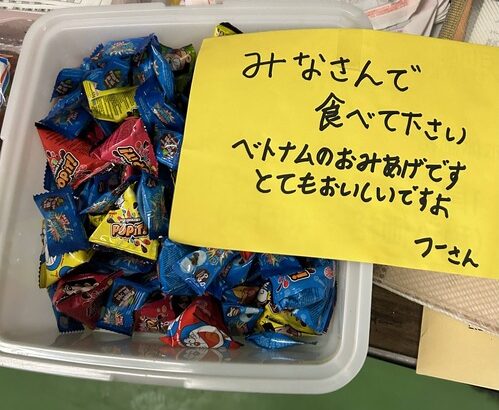 みなさんで
食べて下さい
ベトナムのおみあげです
とてもおいしいですよ
フーさん
POPiT